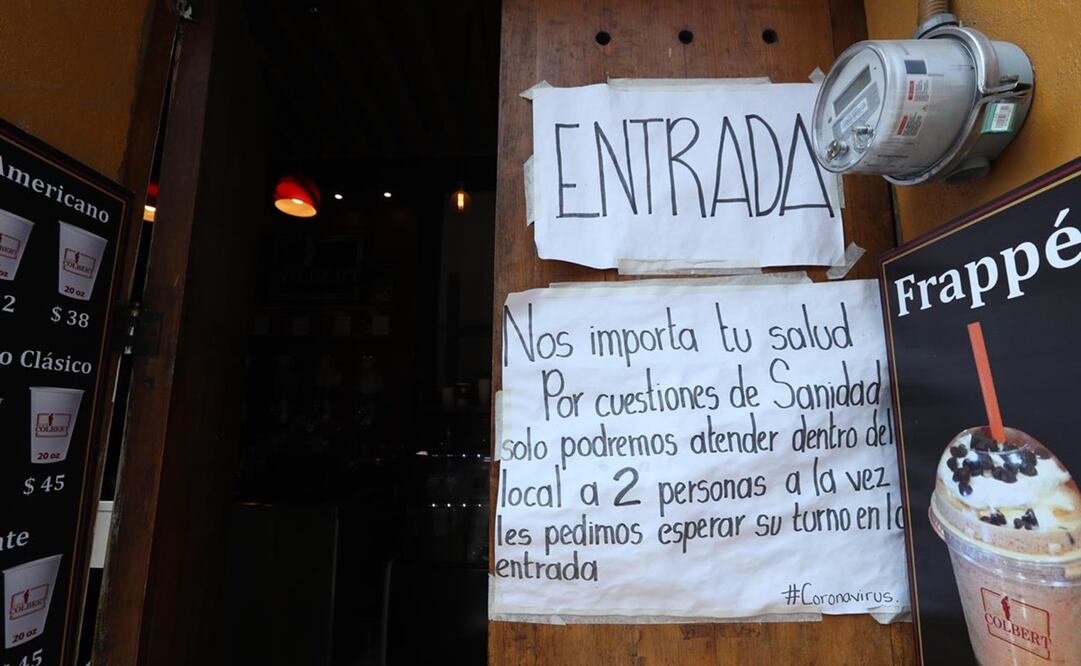 Americano
COLBERT
20 oz
2
$ 38
o Clásico
COLBERT
20 oz
$ 45
te
COLBERT
20 oz
45
COLBERT
ENTRADA
Nos importa tu salud
Por cuestiones de Sanidad
solo podremos atender dentro del
local a 2 personas a la vez
les pedimos esperar su turno en la
entrada
#Coronavirus.
Frappé
COLBERT